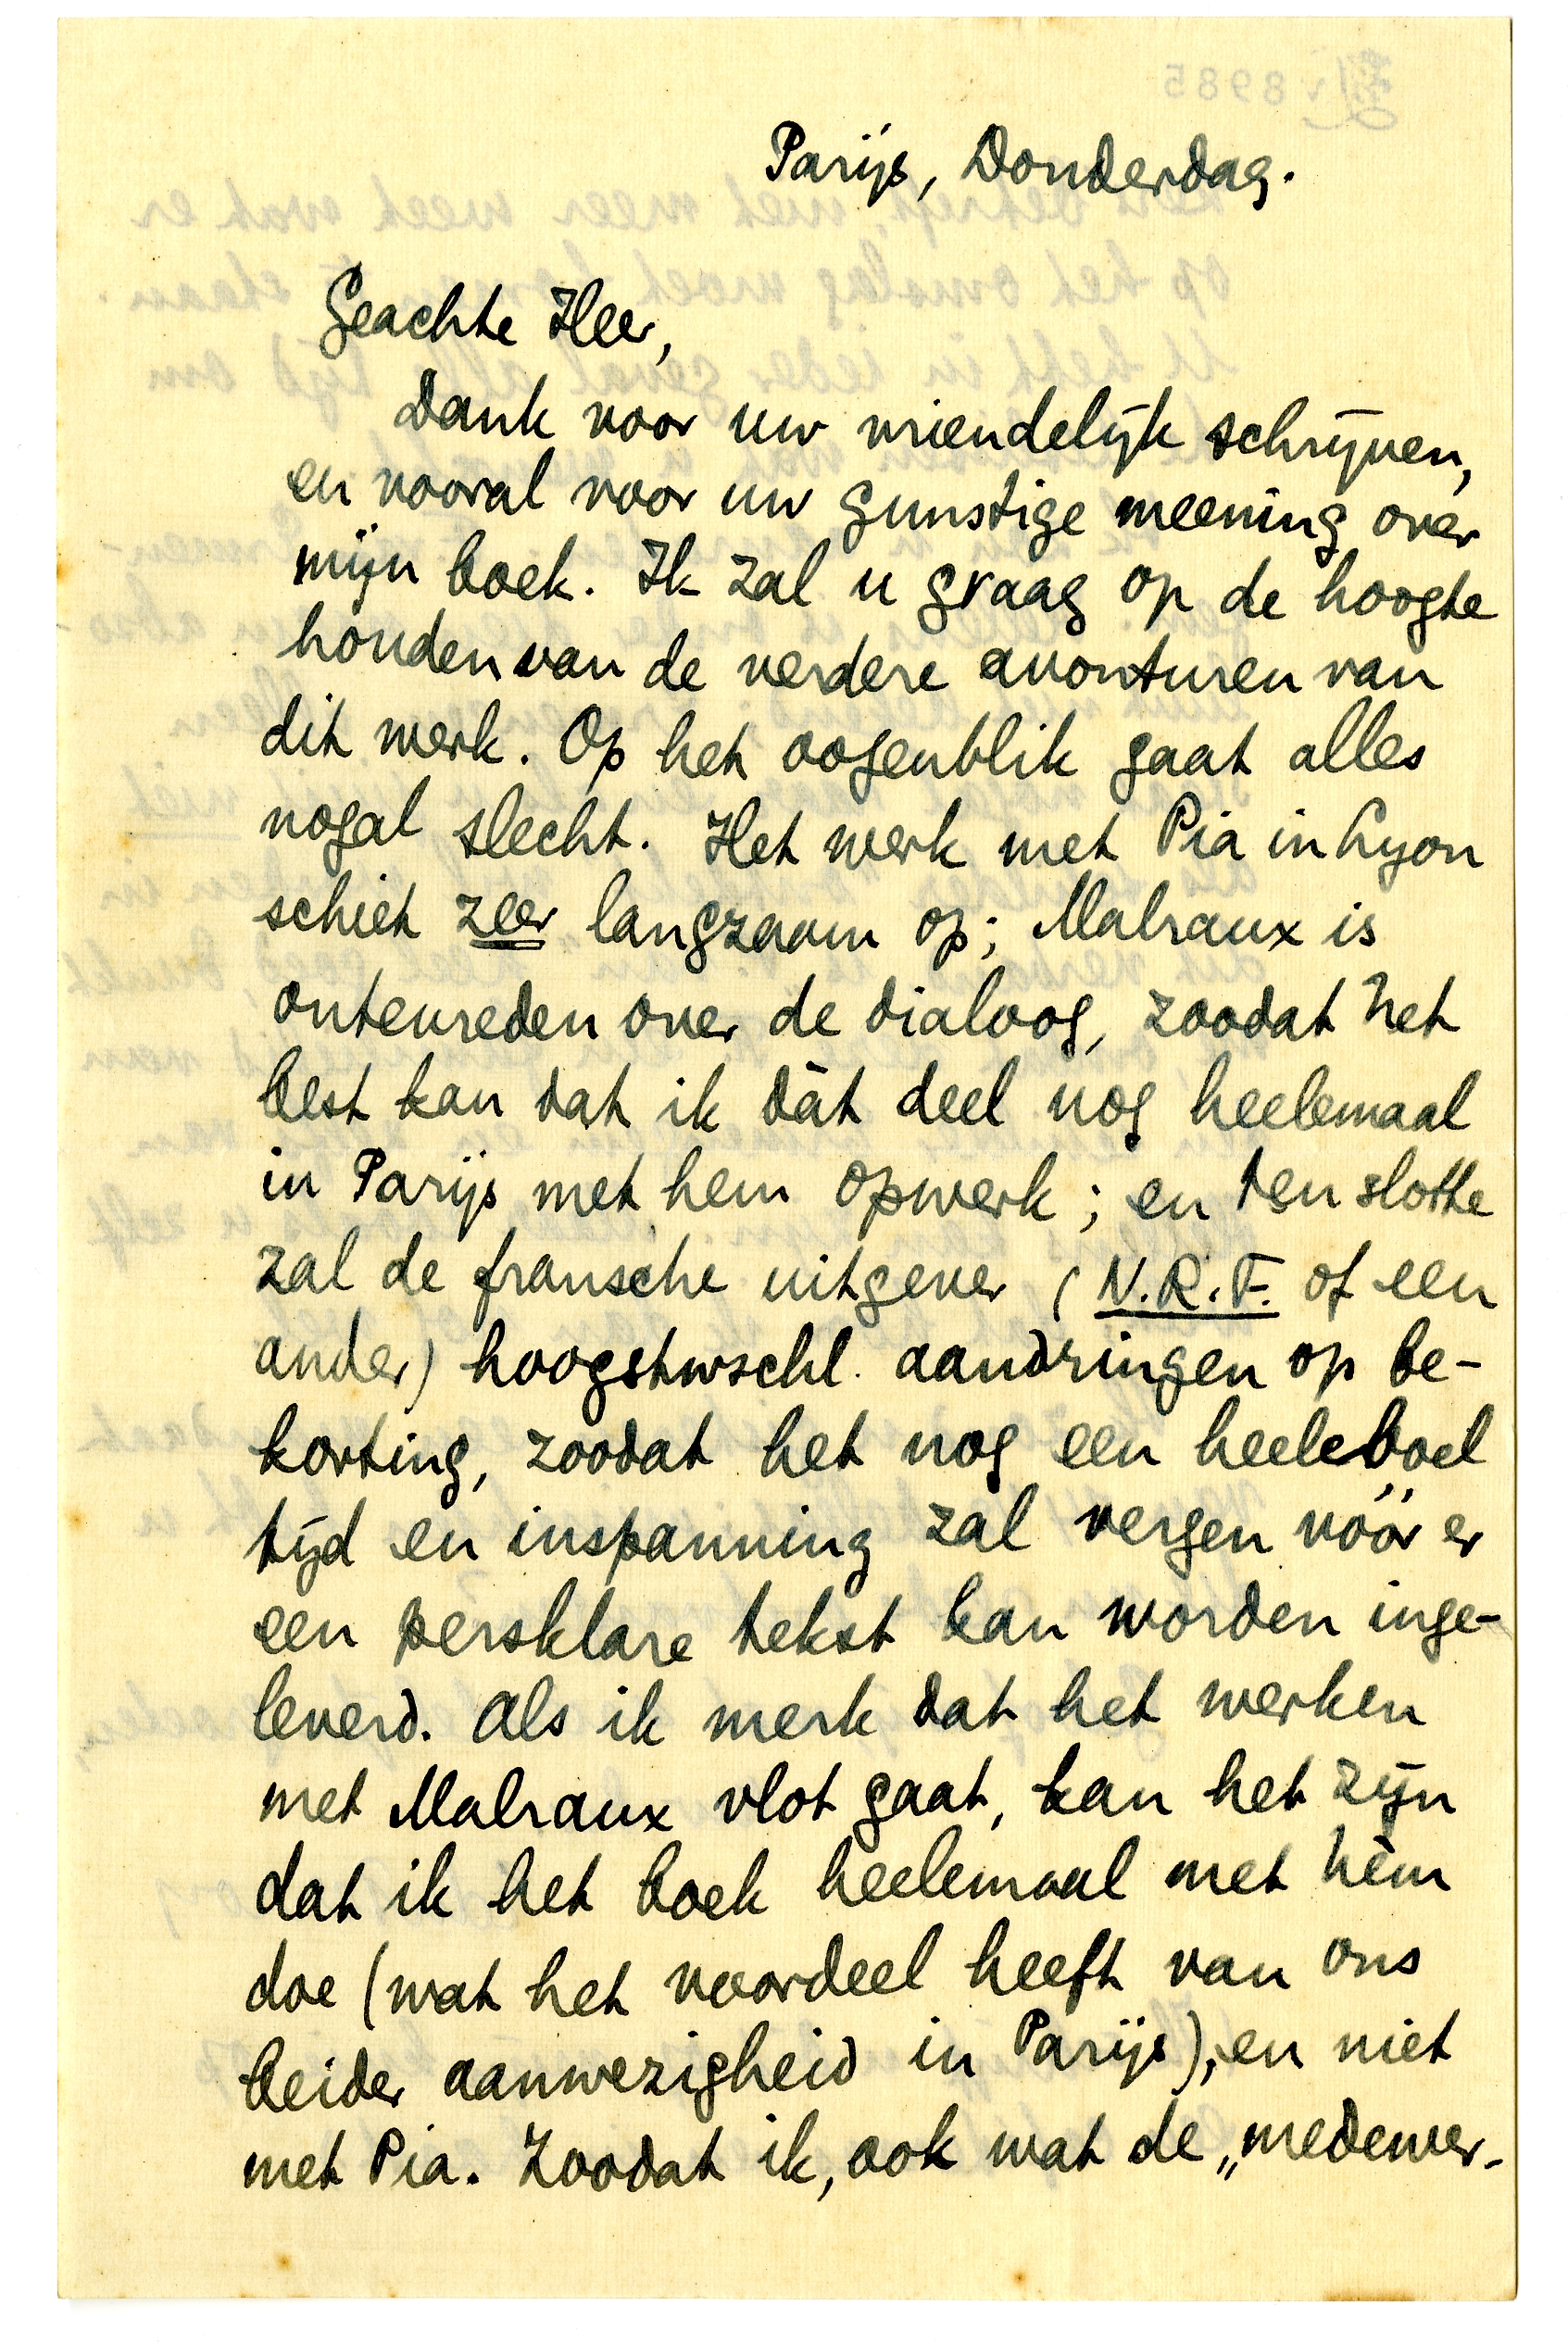 Parijs, Donderdag.
Geachte Heer,
Dank voor uw vriendelijk schrijven,
en vooral voor uw gunstige meening over
mijn boek. Ik zal u graag op de hoogte
houden van de verdere avonturen van
dit werk. Op het oogenblik gaat alles
nogal slecht. Het werk met Pia in Lyon
schiet zeer langzaam op; Malraux is
ontevreden over de dialoog, zoodat het
best kan dat ik dàt deel nog heelemaal
in Parijs met hem opwerk; en ten slotte
zal de fransche uitgever (N.R.F. of een
ander) hoogstwschl. aandringen op be-
korting, zoodat het nog een heeleboel
tijd en inspanning zal vergen vóór er
een persklare tekst kan worden inge-
leverd. Als ik merk dat het werken
met Malraux vlot gaat, kan het zijn
dat ik het boek heelemaal met hèm
doe (wat het voordeel heeft van ons
beider aanwezigheid in Parijs), en niet
met Pia. Zoodat ik, ook wat de „medewer-